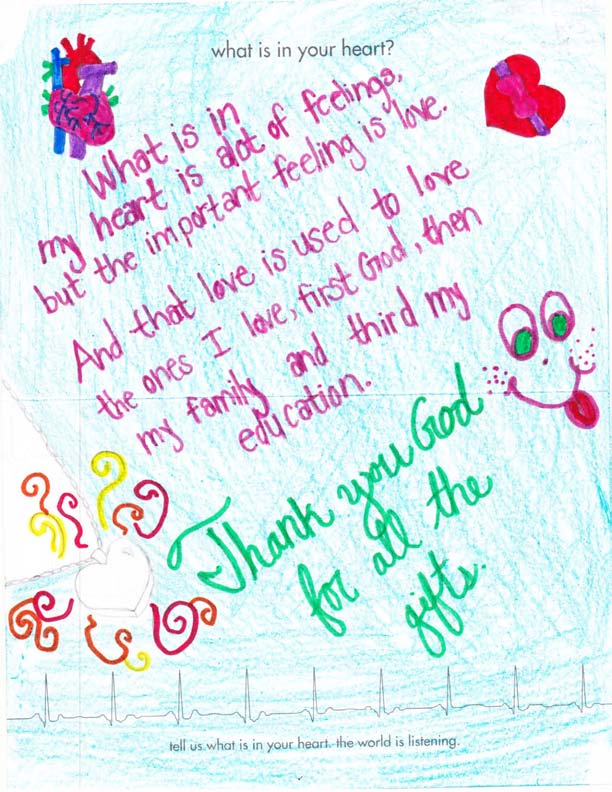 what is in your heart?
What is in
my heart is alot of feelings,
but the important feeling is love.
And that love is used to love
the ones I love, first God, then
my family and third my
education.
Thank you God
for all the
gifts.
tell us what is in your heart. the world is listening.